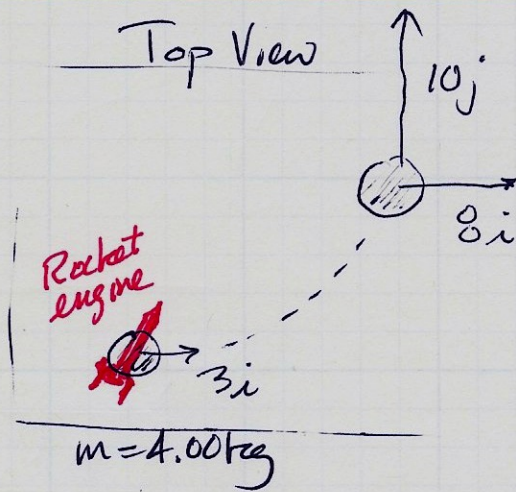 Top View
10j
8i
Rocket
engine
3i
m=4.00kg